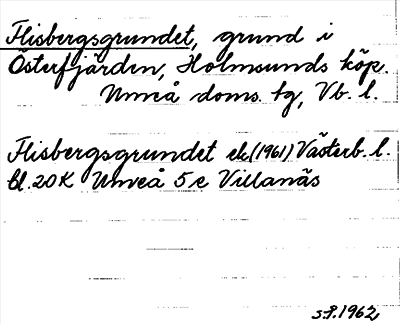 Flisbergsgrundet, grund i
Österfjärden, Holmsunds köp.
Umeå doms. tg, Vb. l.
Flisbergsgrundet ek.(1961) Västerb. l.
bl. 20K Umeå 5 c Villanäs
s.P.1962